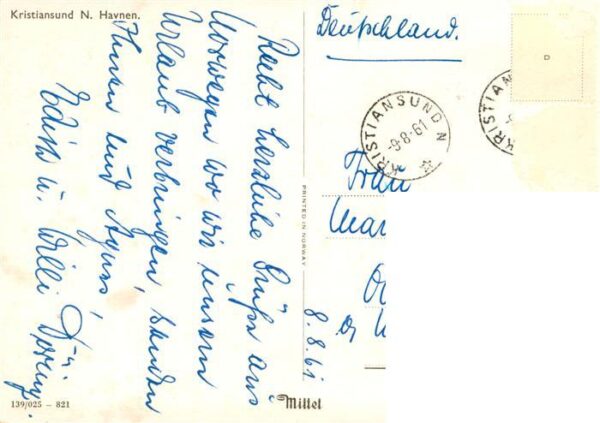 Kristiansund N. Havnen.
Recht herzliche Grüße aus
Norwegen wo wir unsern
Urlaub verbringen, senden
Ihnen und
Edith u. Willi
8.8.61
Deutschland.
KRISTIANSUND N
-9-8-61
KRISTIAN
D
Frau
PRINTED IN NORWAY
Mittet
139/025 – 821